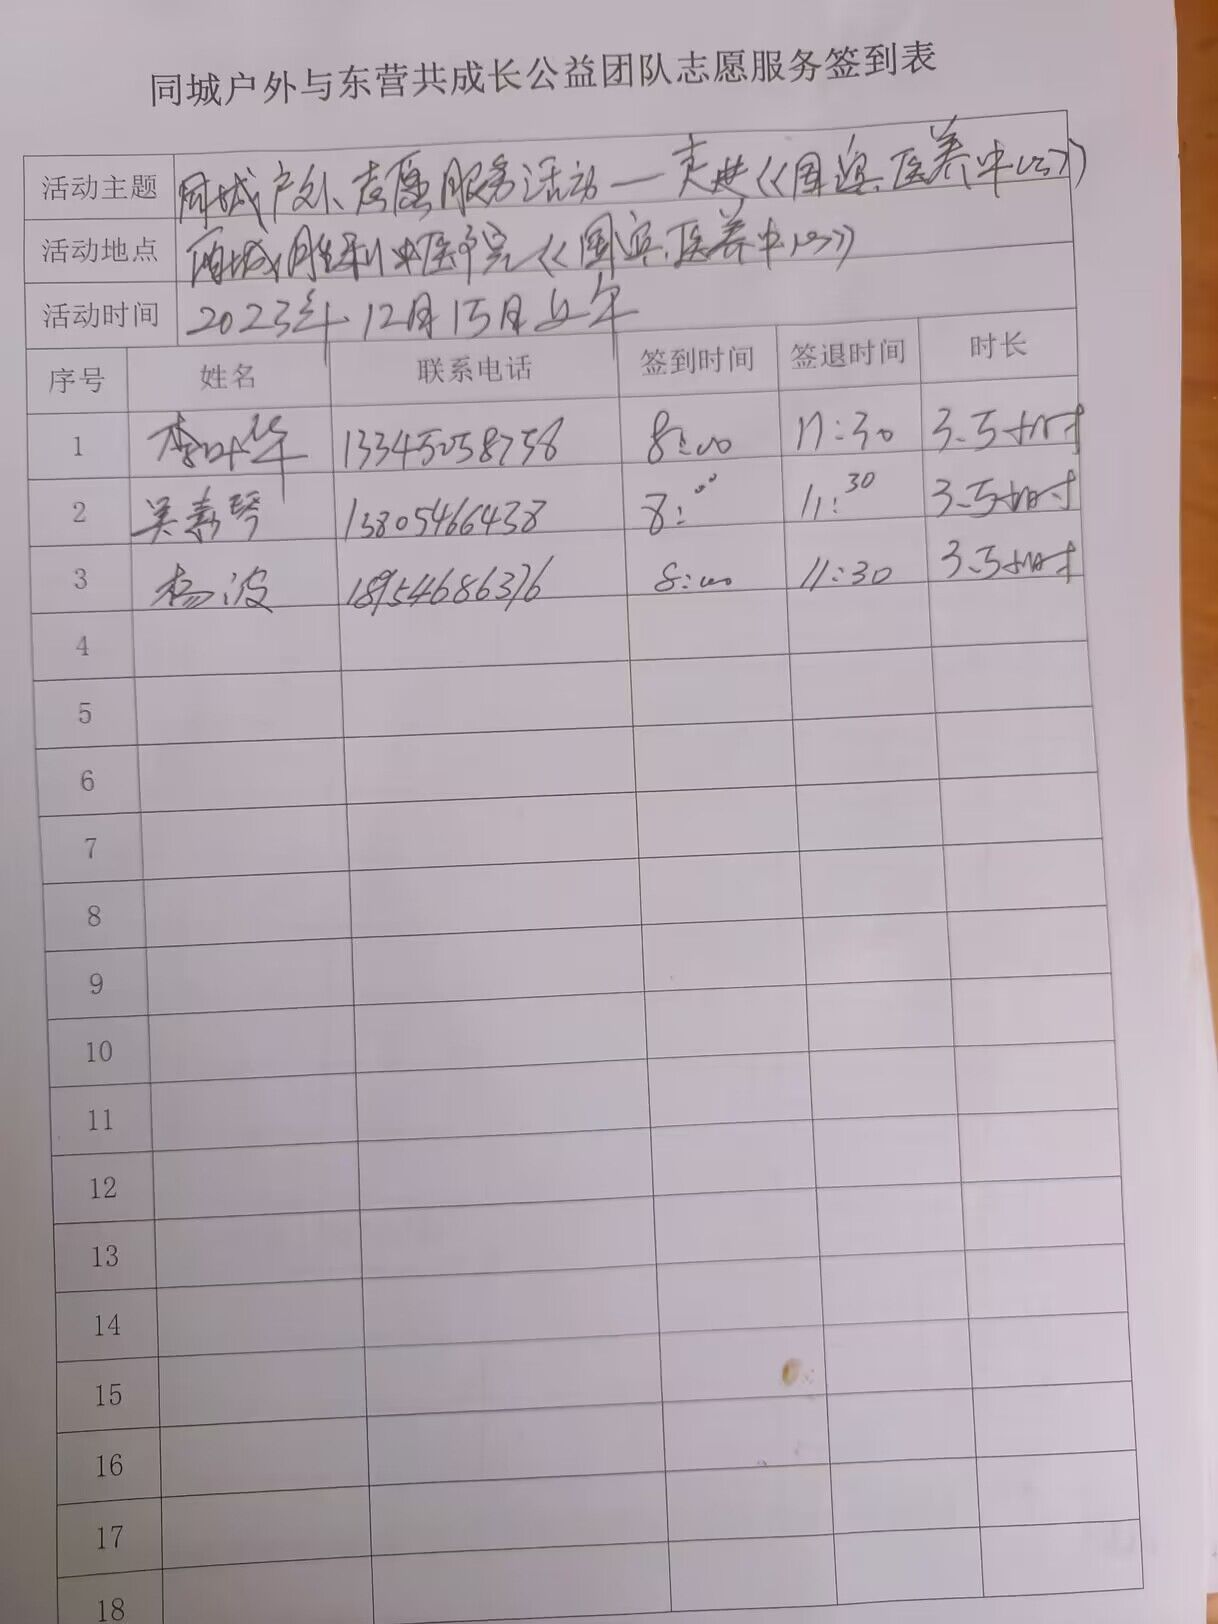 同城户外与东营共成长公益团队志愿服务签到表
活动主题 同城户外、志愿服务活动—走进《国宾医养中心》
活动地点 西城胜利中医院《国宾医养中心》
活动时间 2023年12月15日上午
序号 姓名 联系电话 签到时间 签退时间 时长
1 李叶华 13345058758 8:00 11:30 3.5小时
2 吴嘉琴 13805466438 8:00 11:30 3.5小时
3 杨波 18954686376 8:00 11:30 3.5小时
4
5
6
7
8
9
10
11
12
13
14
15
16
17
18